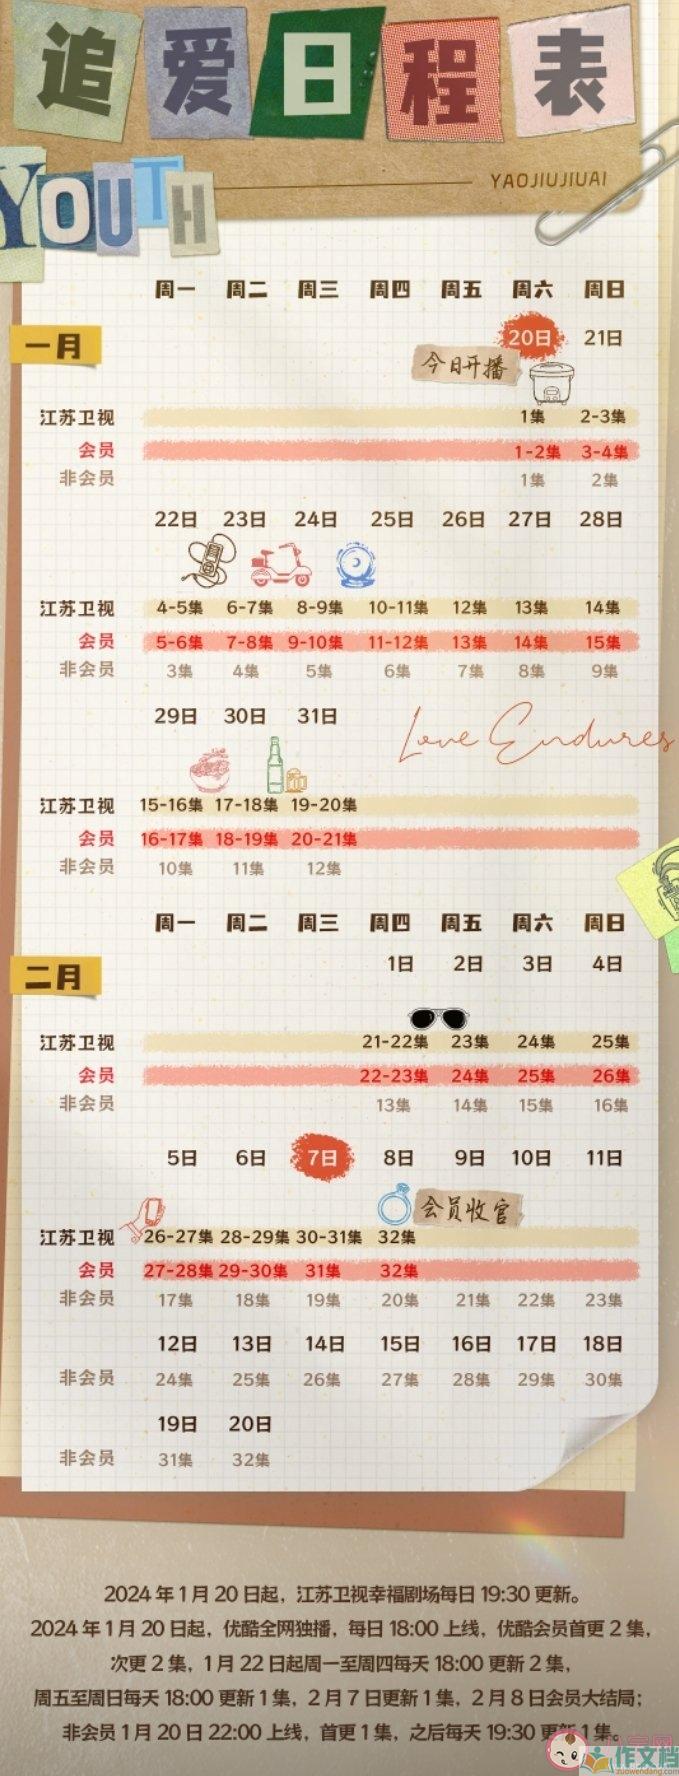 追爱日程表
YOUTH
YAOJIUJIUAI
周一 周二 周三 周四 周五 周六 周日
一月
20日 21日
今日开播
江苏卫视 1集 2-3集
会员 1-2集 3-4集
非会员 1集 2集
22日 23日 24日 25日 26日 27日 28日
江苏卫视 4-5集 6-7集 8-9集 10-11集 12集 13集 14集
会员 5-6集 7-8集 9-10集 11-12集 13集 14集 15集
非会员 3集 4集 5集 6集 7集 8集 9集
29日 30日 31日
Love Endures
江苏卫视 15-16集 17-18集 19-20集
会员 16-17集 18-19集 20-21集
非会员 10集 11集 12集
周一 周二 周三 周四 周五 周六 周日
1日 2日 3日 4日
二月
江苏卫视 21-22集 23集 24集 25集
会员 22-23集 24集 25集 26集
非会员 13集 14集 15集 16集
5日 6日 7日 8日 9日 10日 11日
会员收官
江苏卫视 26-27集 28-29集 30-31集 32集
会员 27-28集 29-30集 31集 32集
非会员 17集 18集 19集 20集 21集 22集 23集
12日 13日 14日 15日 16日 17日 18日
非会员 24集 25集 26集 27集 28集 29集 30集
19日 20日
非会员 31集 32集
2024年1月20日起，江苏卫视幸福剧场每日19:30更新。
2024年1月20日起，优酷全网独播，每日18:00上线，优酷会员首更2集，
次更2集，1月22日起周一至周四每天18:00更新2集，
周五至周日每天18:00更新1集，2月7日更新1集，2月8日会员大结局；
非会员1月20日22:00上线，首更1集，之后每天19:30更新1集。
作文档
zuowendang.com